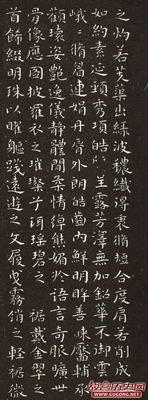 之灼若芙蕖出綠波穠纖得衷脩短合度肩若削成
如約素延頸秀項皓呈露芳澤無加鉛華不御雲
峨峨脩眉連娟丹脣外朗皓齒內鮮明眸善睞靨輔承
顴瓌姿艷逸儀靜體閑柔情綽態媚於語言奇服曠世
骨像應圖披羅衣之璀粲兮珥瑤碧之裾戴金翠之
首飾綴明珠以耀軀踐遠遊之文履曳霧綃之輕裾微